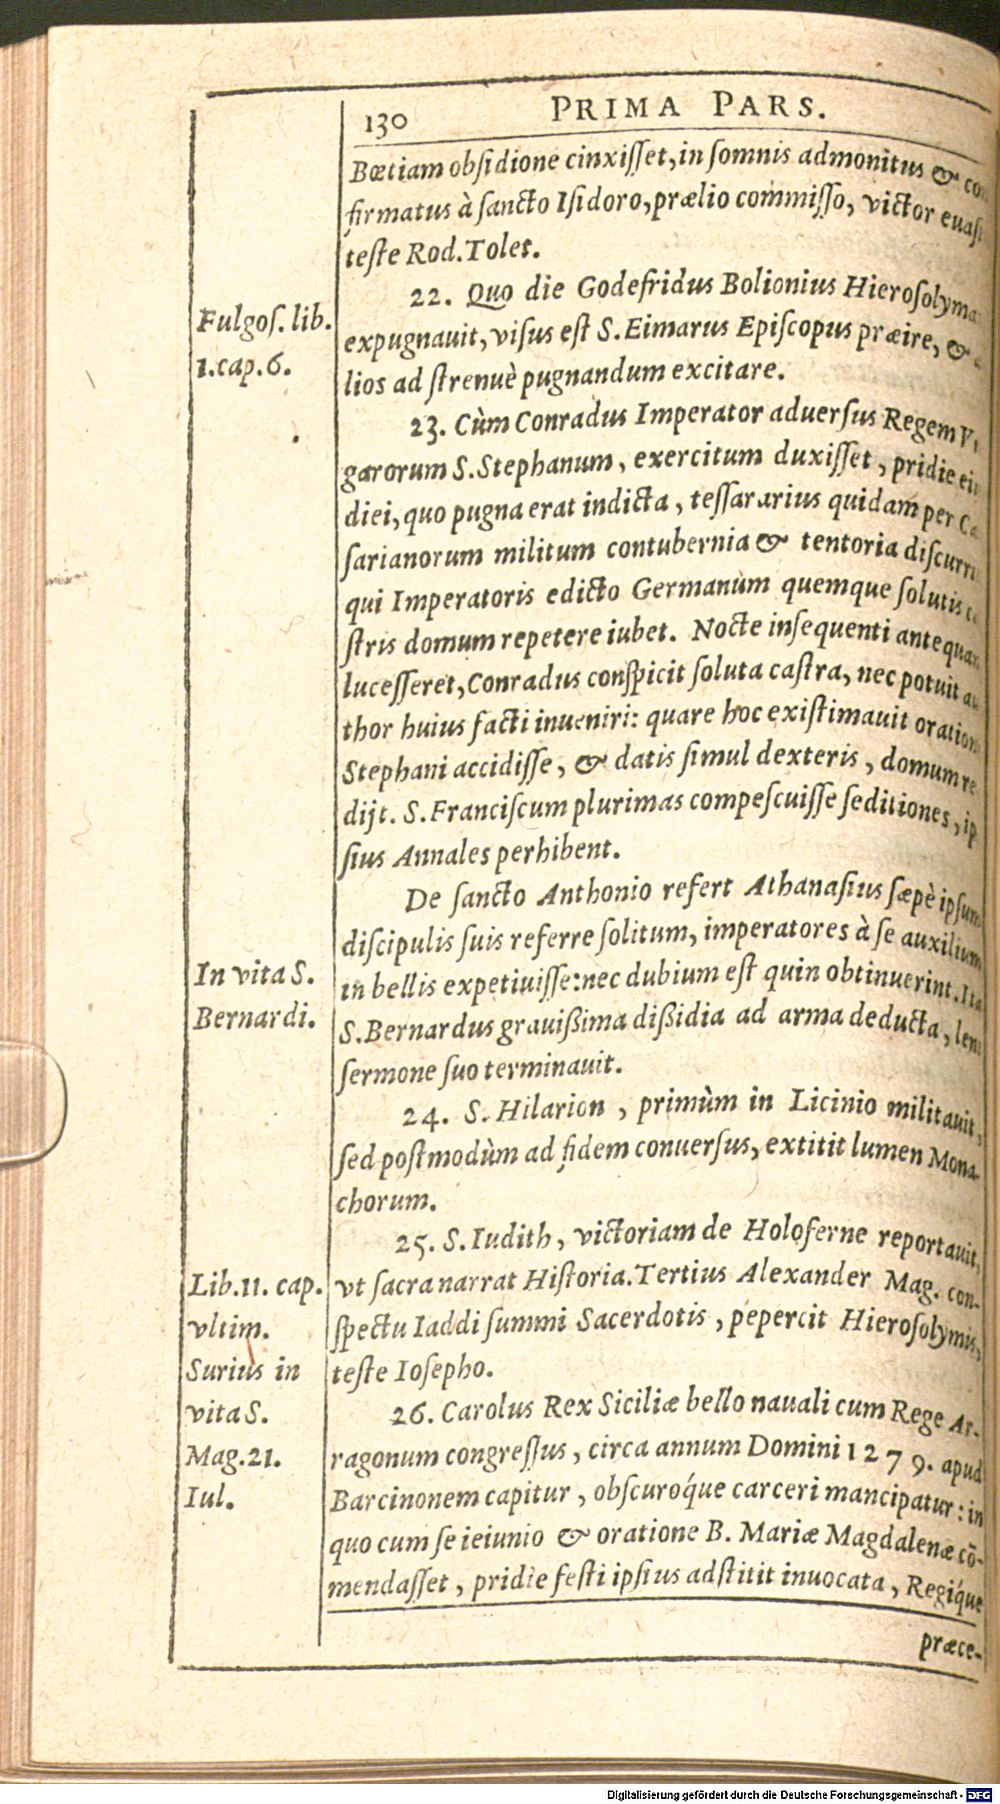 130 PRIMA PARS.
Bœtiam obſidione cinxiſſet, in ſomnis admonitus &
firmatus à ſancto Iſidoro, prælio commiſſo, victor
teſte Rod. Tolet.
Fulgoſ. lib.
1. cap. 6.
22. Quo die Godefridus Bolionius
expugnauit, viſus eſt S. Eimarus Epiſcopus præire, &
lios ad ſtrenuè pugnandum excitare.
23. Cùm Conradus Imperator aduerſus Regem
garorum S. Stephanum, exercitum duxiſſet, pridie
diei, quo pugna erat indicta, teſſararius quidam per
ſarianorum militum contubernia & tentoria
qui Imperatoris edicto Germanùm quemque ſolutis
ſtris domum repetere iubet. Nocte inſequenti
luceſſeret, Conradus conſpicit ſoluta caſtra, nec potuit
thor huius facti inueniri: quare hoc exiſtimauit
Stephani accidiſſe, & datis ſimul dexteris, domum re
dijt. S. Franciſcum plurimas compeſcuiſſe ſeditiones, ip
ſius Annales perhibent.
De ſancto Anthonio refert Athanaſius ſæpè ipſum
diſcipulis ſuis referre ſolitum, imperatores à ſe auxilium
in bellis expetiuiſſe: nec dubium eſt quin obtinuerint. Ita
In vita S.
Bernardi.
S. Bernardus grauißima dißidia ad arma deducta, leni
ſermone ſuo terminauit.
24. S. Hilarion, primùm in Licinio militauit,
ſed poſtmodùm ad fidem conuerſus, extitit lumen Mona-
chorum.
25. S. Iudith, victoriam de Holoferne reportauit,
Lib. 11. cap.
vltim.
vt ſacra narrat Hiſtoria. Tertius Alexander Mag. con-
ſpectu Iaddi ſummi Sacerdotis, pepercit Hieroſolymis,
teſte Ioſepho.
Surius in
vita S.
Mag. 21.
Iul.
26. Carolus Rex Siciliæ bello nauali cum Rege Ar-
ragonum congreſſus, circa annum Domini 1279. apud
Barcinonem capitur, obſcuroq́ue carceri mancipatur: in
quo cum ſe ieiunio & oratione B. Mariæ Magdalenæ cõ-
mendaſſet, pridie feſti ipſius adſtitit inuocata, Regiq́ue
præce-
Digitalisierung gefördert durch die Deutsche Forschungsgemeinschaft - DFG